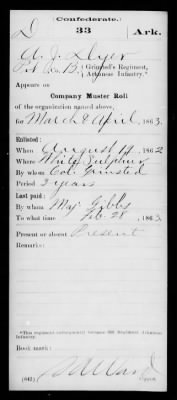 Confederate.
D 33 Ark.
A. J. Dyer
Pvt Co. B, Grinsted's Regiment,
Arkansas Infantry.*
Appears on
Company Muster Roll
of the organization named above,
for March & April, 1863.
Enlisted:
When August 14, 1862
Where White Sulphur
By whom Col. Grinsted
Period 3 years
Last paid:
By whom Maj. Gibbs
To what time Feb. 28, 1863
Present or absent Present
Remarks:
*This regiment subsequently became 33d Regiment Arkansas
Infantry.
Book mark:
(642)
Copyist.